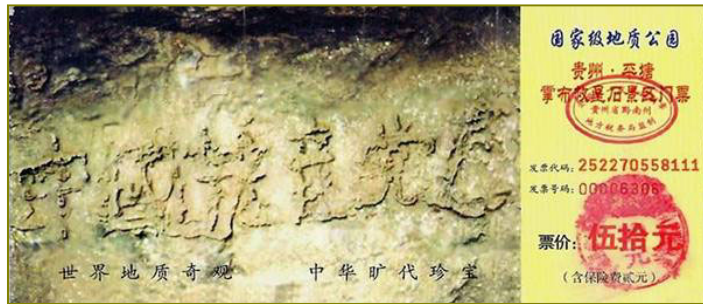 中國共產党亡
世界地质奇观 中华旷代珍宝
国家级地质公园
贵州·平塘
掌布救星石景区门票
贵州省黔南州
地方税务局监制
发票代码: 252270558111
发票号码: 00006306
票价: 伍拾元
(含保险费貳元)